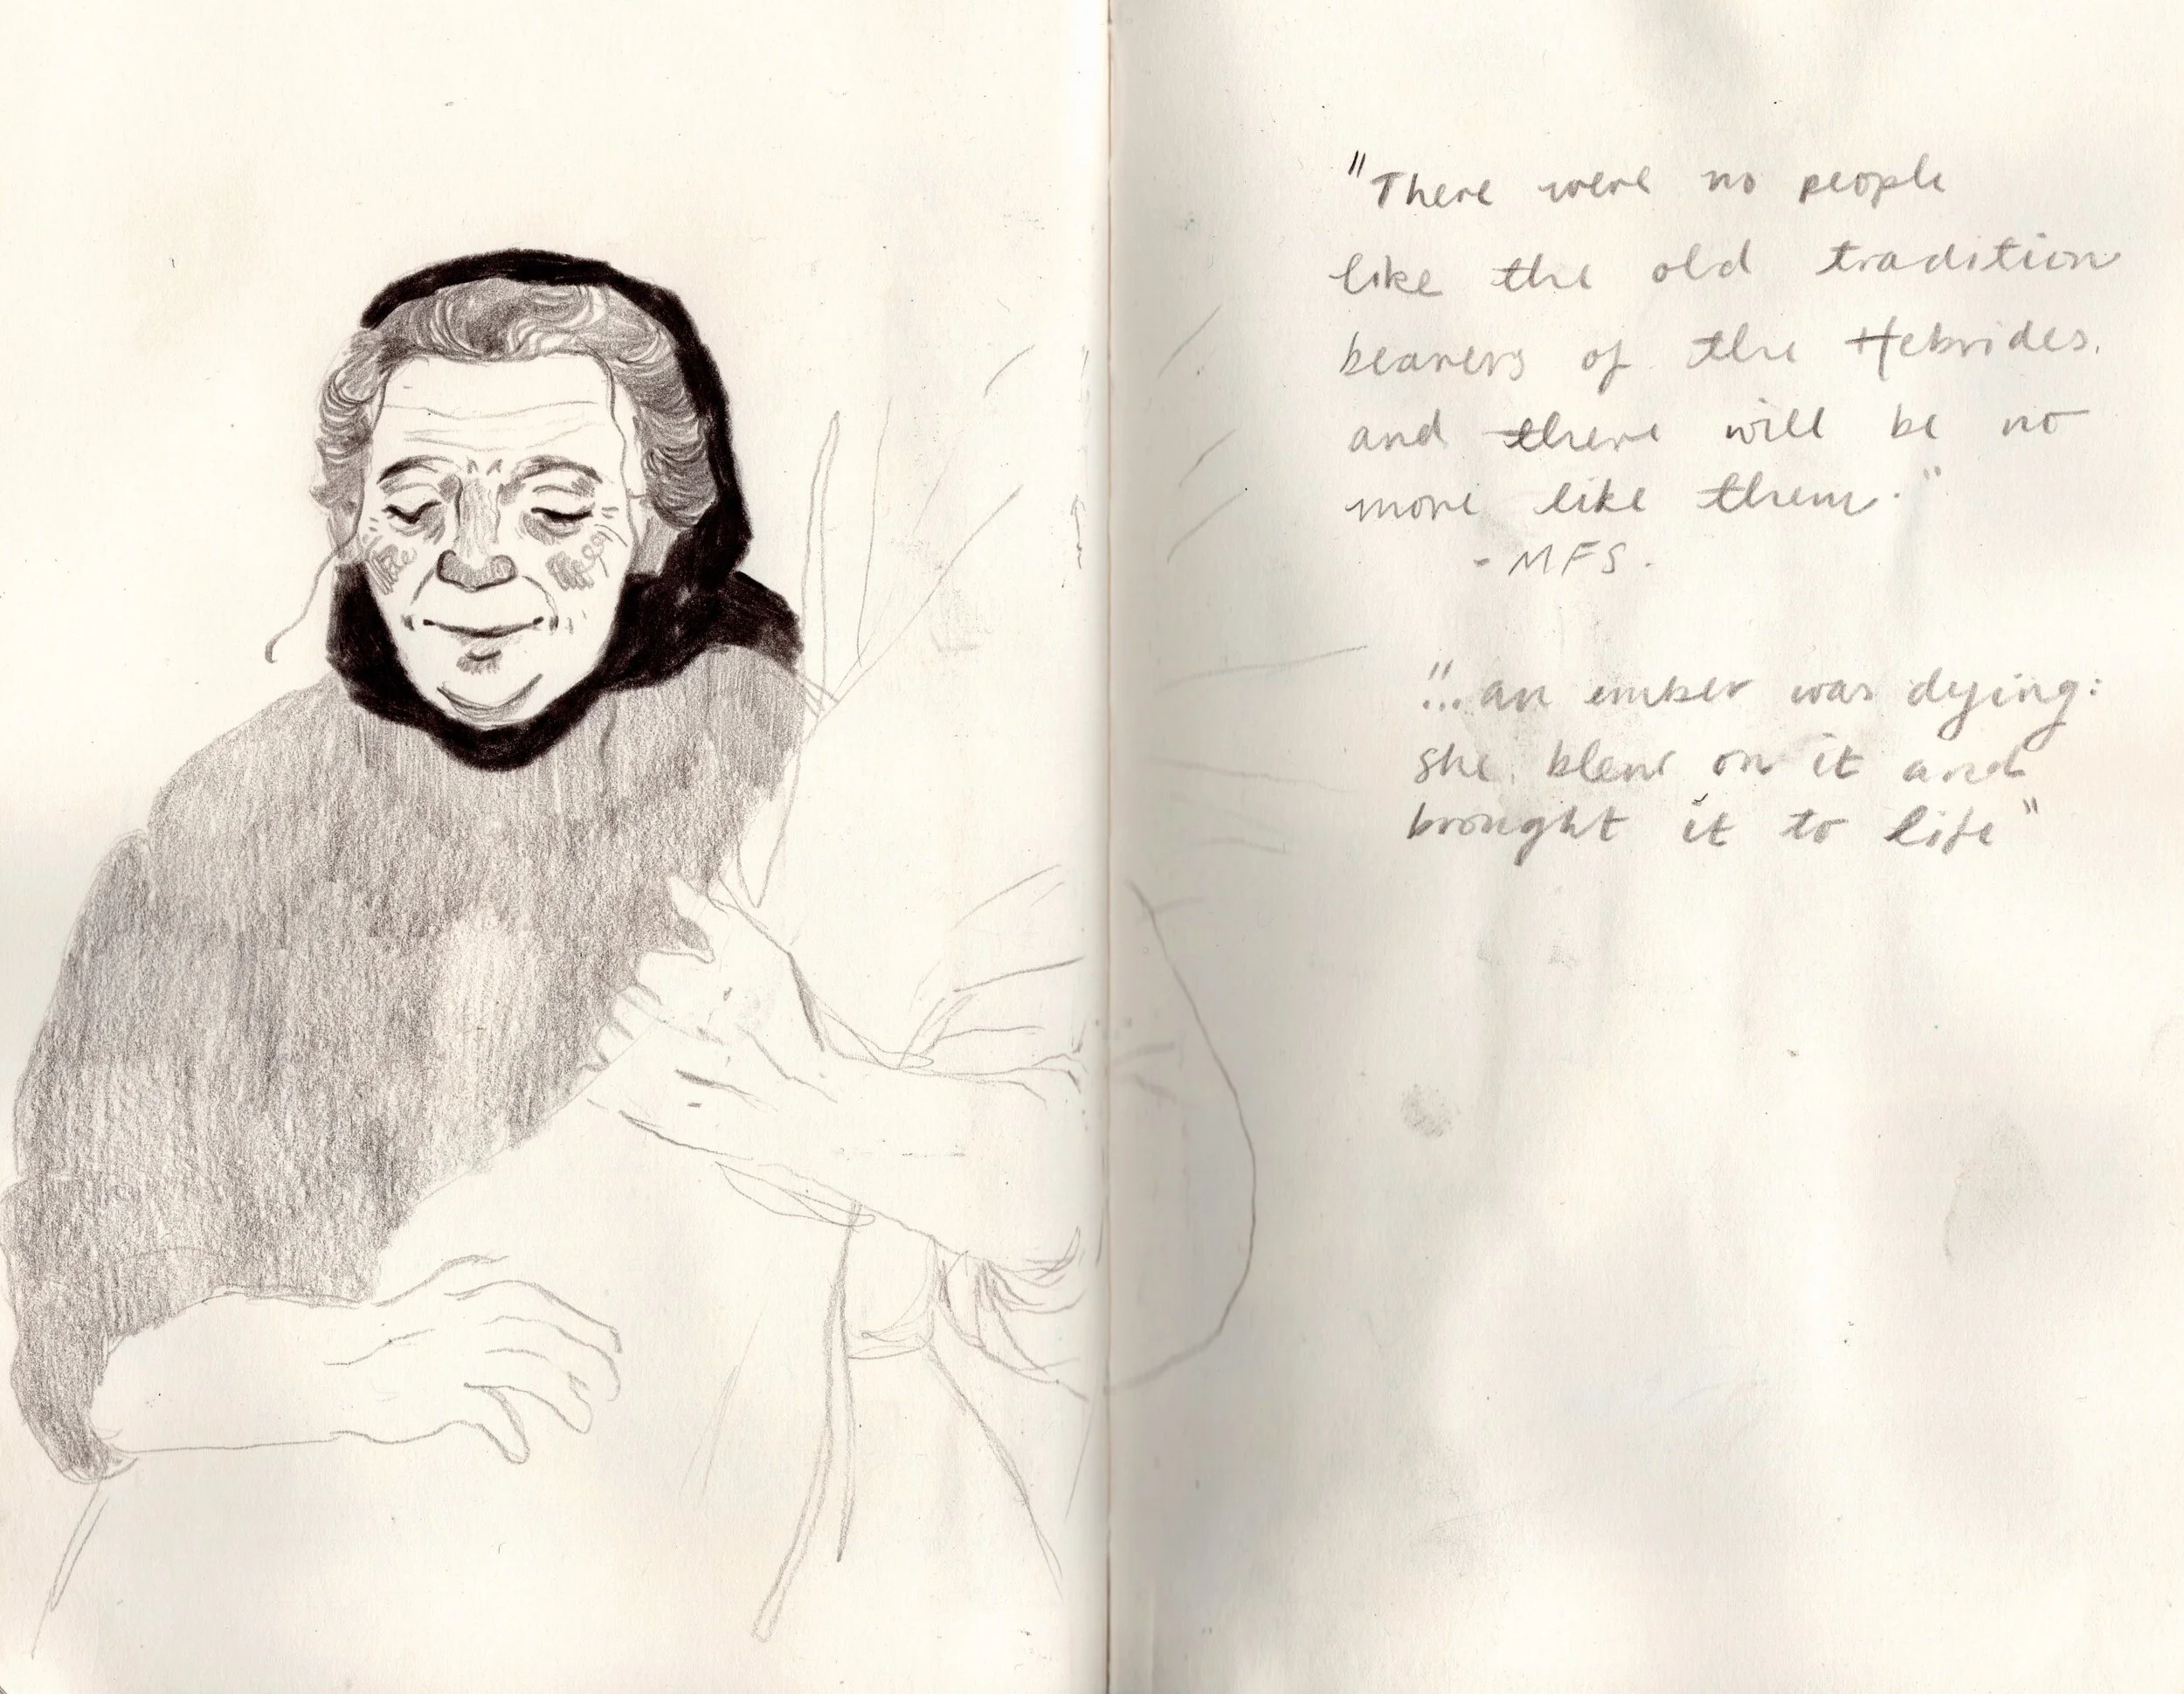 "There were no people
like the old tradition
bearers of the Hebrides,
and there will be no
more like them."
- MFS.
"...an ember was dying:
she blew on it and
brought it to life"